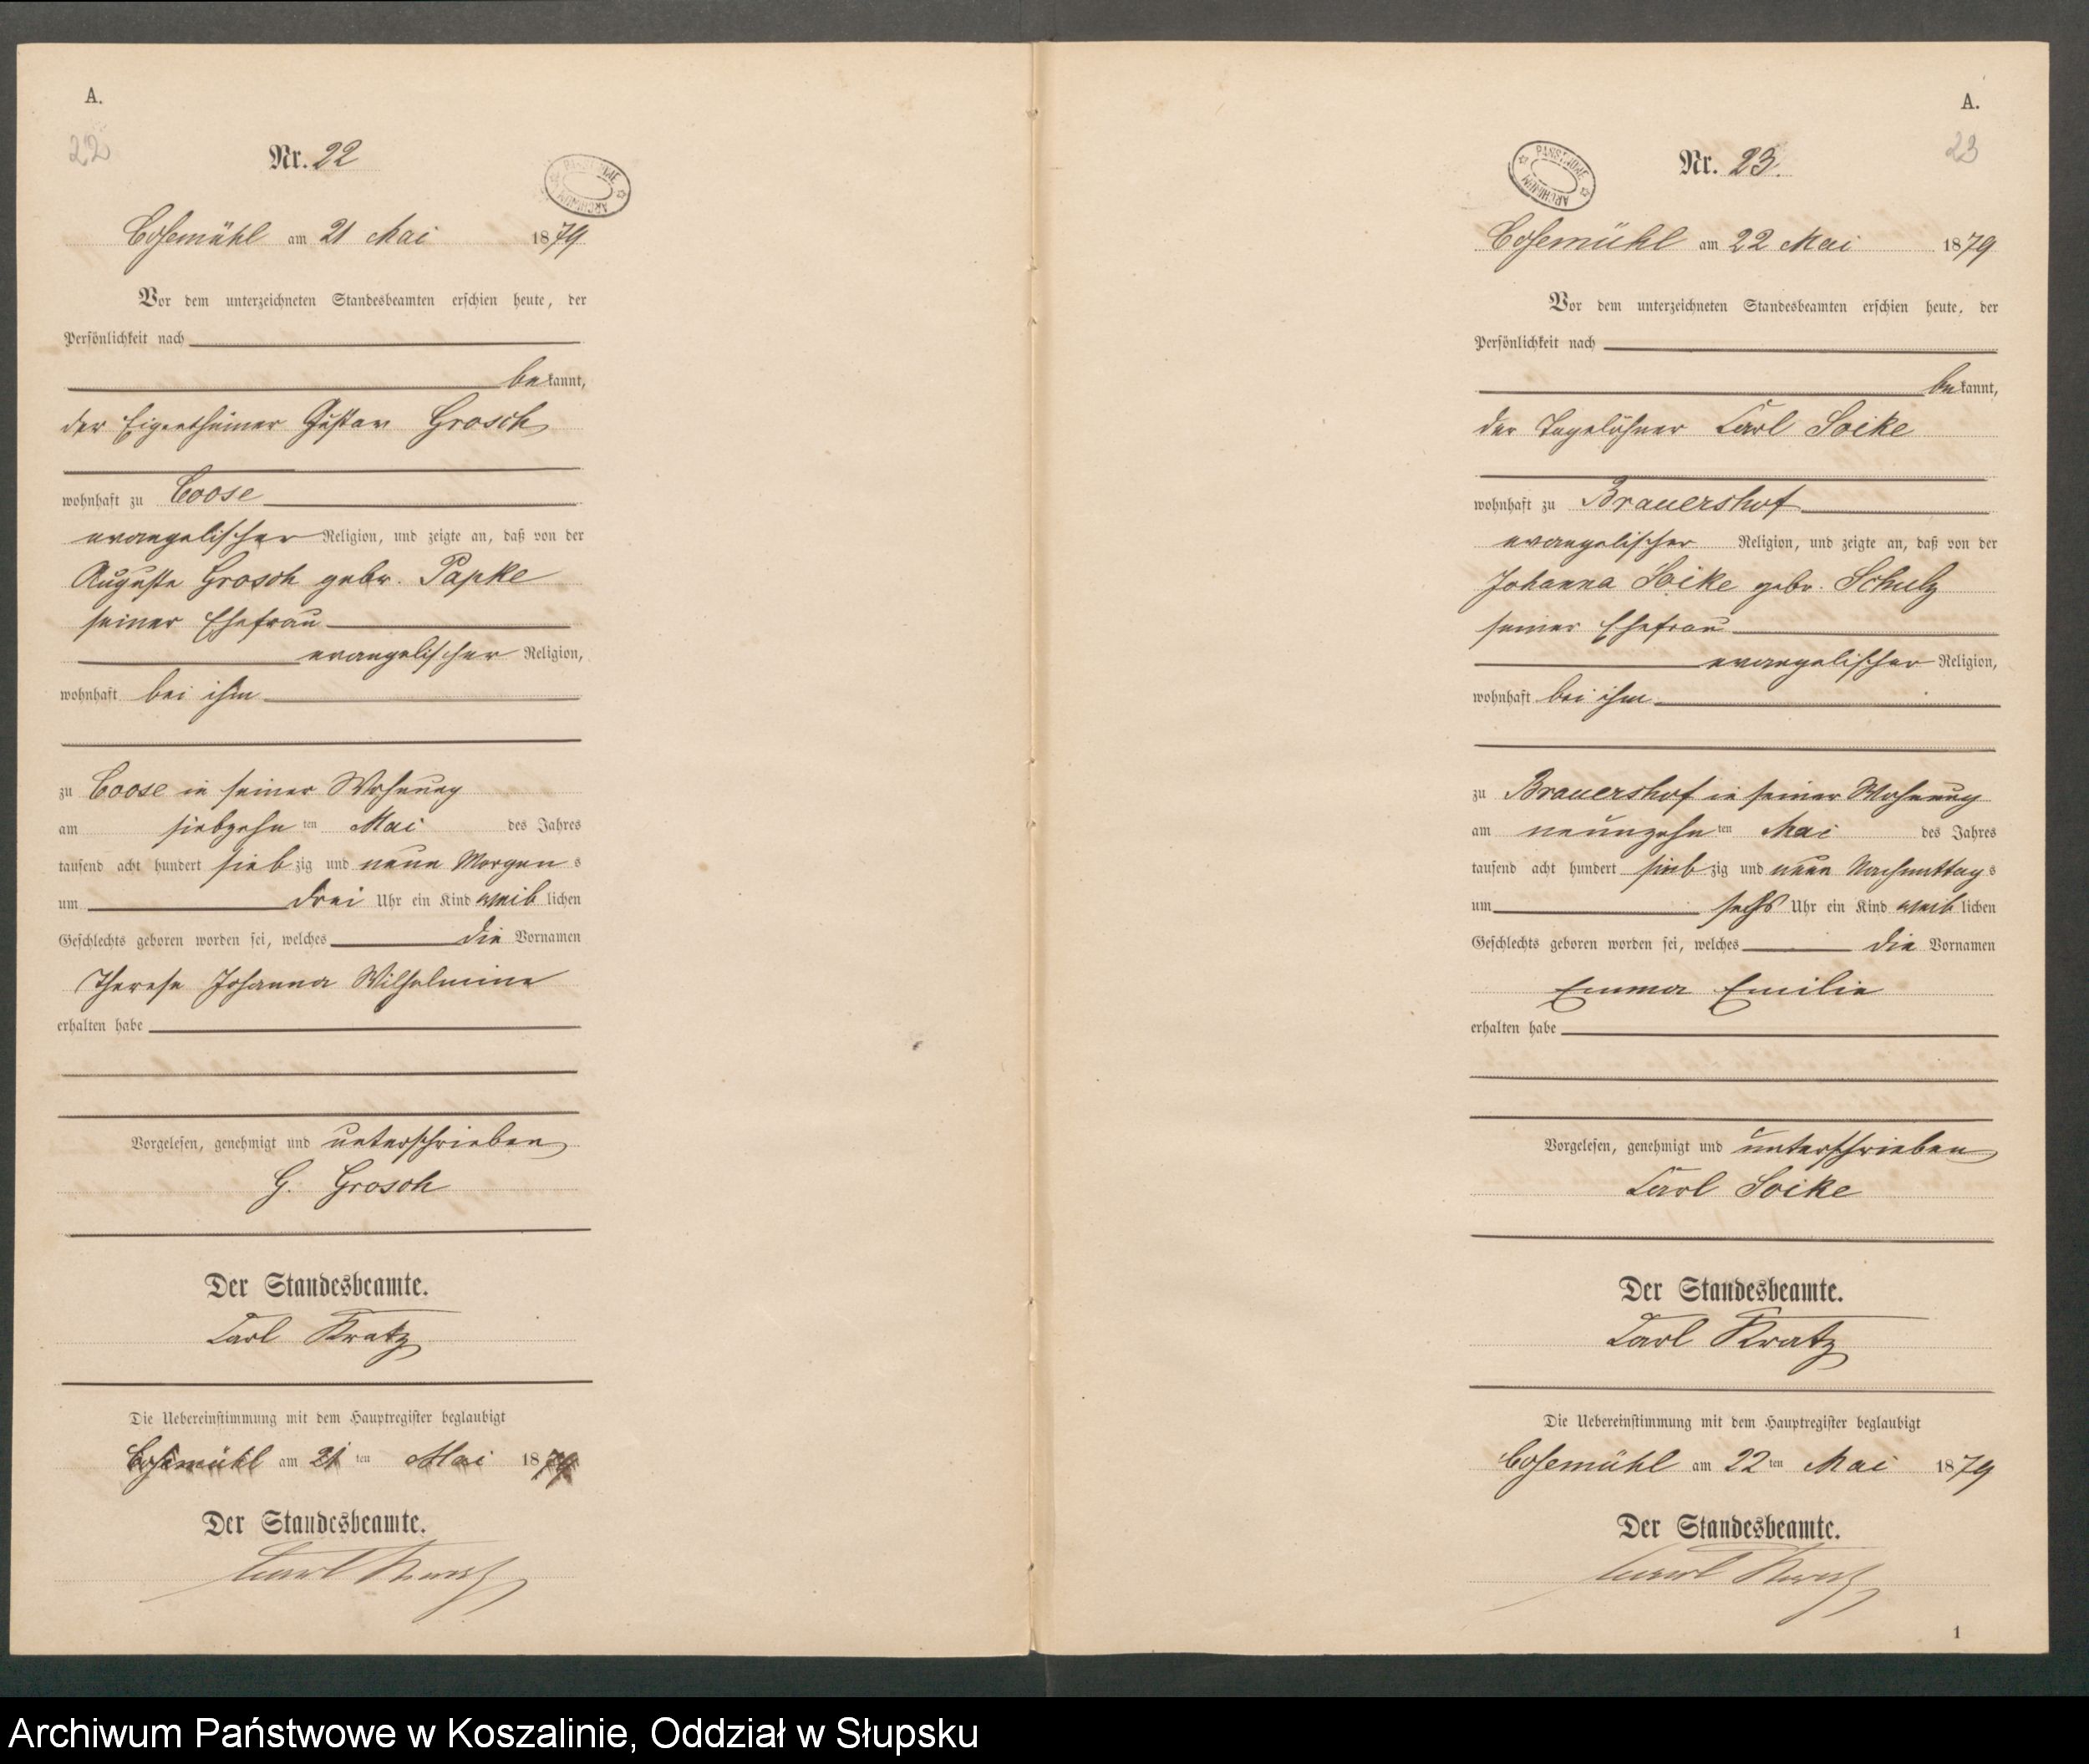 A.
22
Nr. 22
PAŃSTWOWE ARCHIWUM
Cosemühl am 21 Mai 1879
Vor dem unterzeichneten Standesbeamten erschien heute, der
Persönlichkeit nach
bekannt,
der Eigenthümer Gustav Grosch
wohnhaft zu Coose
evangelischer Religion, und zeigte an, daß von der
Auguste Grosch gebr. Papke
seiner Ehefrau
evangelischer Religion,
wohnhaft bei ihm
zu Coose in seiner Wohnung
am siebzehn ten Mai des Jahres
tausend acht hundert siebzig und neun Morgens
um drei Uhr ein Kind weiblichen
Geschlechts geboren worden sei, welches die Vornamen
Therese Johanna Wilhelmine
erhalten habe
Vorgelesen, genehmigt und unterschrieben
G. Grosch
Der Standesbeamte.
Carl Kratz
Die Uebereinstimmung mit dem Hauptregister beglaubigt
Cosemühl am 21 ten Mai 1879
Der Standesbeamte.
Carl Kratz
A.
23
Nr. 23.
PAŃSTWOWE ARCHIWUM
Cosemühl am 22 Mai 1879
Vor dem unterzeichneten Standesbeamten erschien heute, der
Persönlichkeit nach
bekannt,
der Tagelöhner Carl Soike
wohnhaft zu Brauershof
evangelischer Religion, und zeigte an, daß von der
Johanna Soike gebr. Schulz
seiner Ehefrau
evangelischer Religion,
wohnhaft bei ihm
zu Brauershof in seiner Wohnung
am neunzehn ten Mai des Jahres
tausend acht hundert siebzig und neun Nachmittags
um sechs Uhr ein Kind weiblichen
Geschlechts geboren worden sei, welches die Vornamen
Emma Emilie
erhalten habe
Vorgelesen, genehmigt und unterschrieben
Carl Soike
Der Standesbeamte.
Carl Kratz
Die Uebereinstimmung mit dem Hauptregister beglaubigt
Cosemühl am 22 ten Mai 1879
Der Standesbeamte.
Carl Kratz
1
Archiwum Państwowe w Koszalinie, Oddział w Słupsku